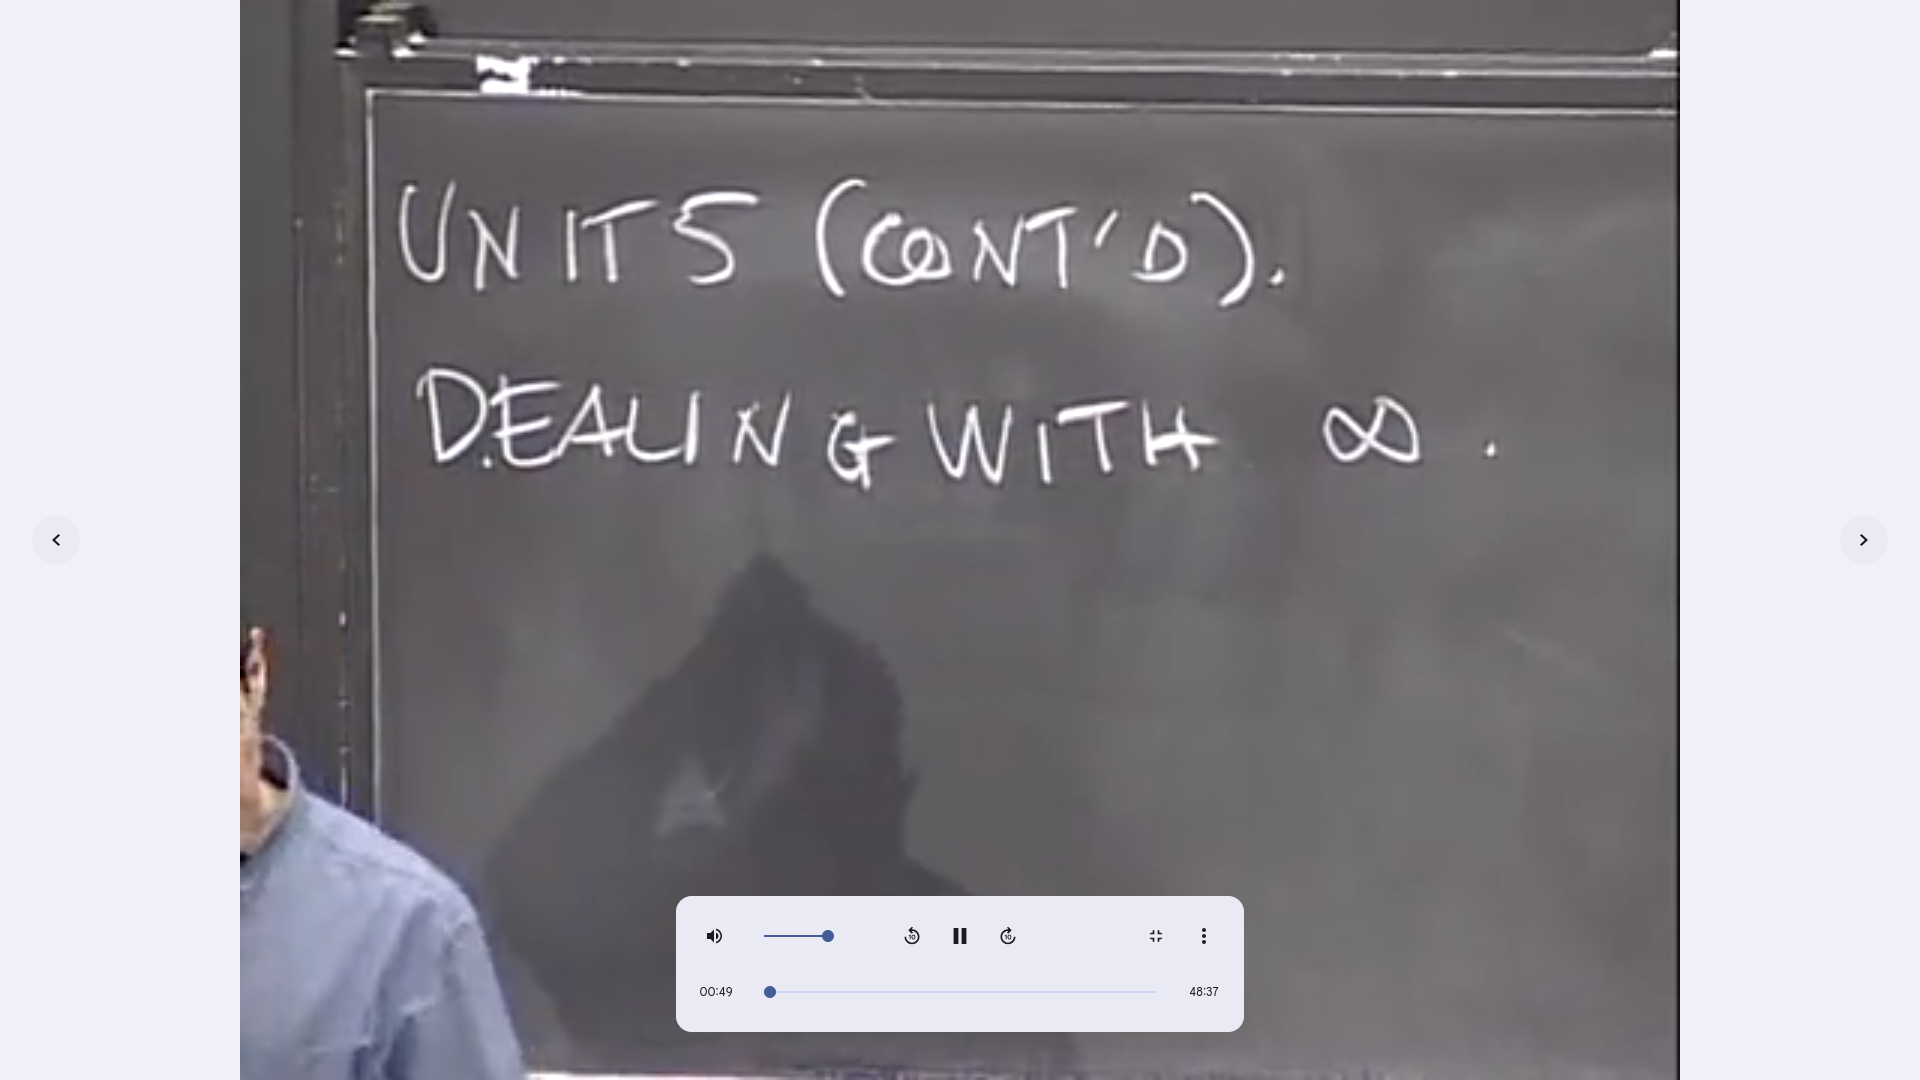 UNIT 5 (CONT'D).
DEALING WITH ∞.
00:49
48:37